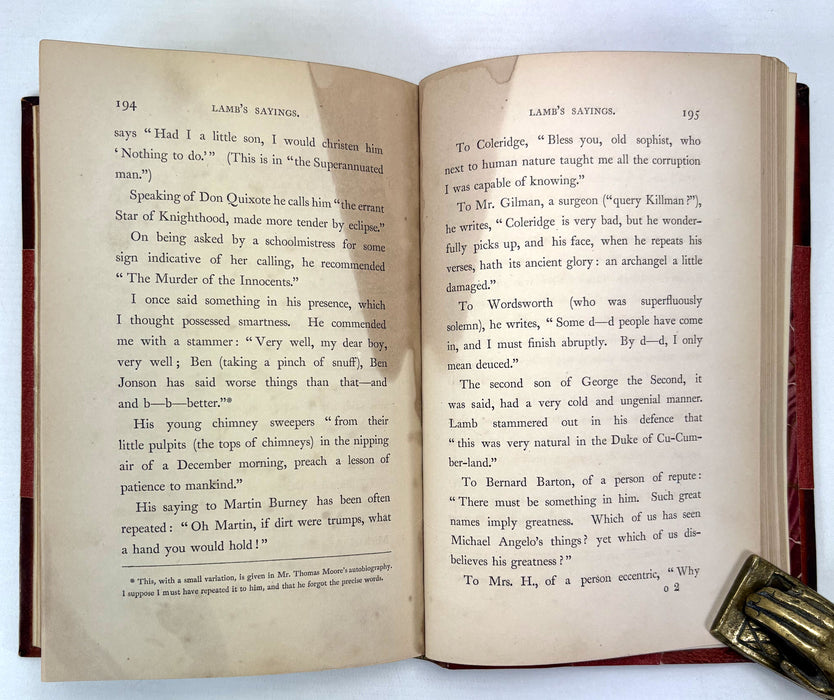 194
LAMB'S SAYINGS.
says “Had I a little son, I would christen him
‘Nothing to do.’” (This is in “the Superannuated
man.”)
Speaking of Don Quixote he calls him “the errant
Star of Knighthood, made more tender by eclipse.”
On being asked by a schoolmistress for some
sign indicative of her calling, he recommended
“The Murder of the Innocents.”
I once said something in his presence, which
I thought possessed smartness. He commended
me with a stammer: “Very well, my dear boy,
very well; Ben (taking a pinch of snuff), Ben
Jonson has said worse things than that—and
and b—b—better.”*
His young chimney sweepers “from their
little pulpits (the tops of chimneys) in the nipping
air of a December morning, preach a lesson of
patience to mankind.”
His saying to Martin Burney has been often
repeated: “Oh Martin, if dirt were trumps, what
a hand you would hold!”
* This, with a small variation, is given in Mr. Thomas Moore's autobiography.
I suppose I must have repeated it to him, and that he forgot the precise words.
LAMB'S SAYINGS.
195
To Coleridge, “Bless you, old sophist, who
next to human nature taught me all the corruption
I was capable of knowing.”
To Mr. Gilman, a surgeon (“query Killman?”),
he writes, “Coleridge is very bad, but he wonder-
fully picks up, and his face, when he repeats his
verses, hath its ancient glory: an archangel a little
damaged.”
To Wordsworth (who was superfluously
solemn), he writes, “Some d—d people have come
in, and I must finish abruptly. By d—d, I only
mean deuced.”
The second son of George the Second, it
was said, had a very cold and ungenial manner.
Lamb stammered out in his defence that
“this was very natural in the Duke of Cu-Cum-
ber-land.”
To Bernard Barton, of a person of repute:
“There must be something in him. Such great
names imply greatness. Which of us has seen
Michael Angelo's things? yet which of us dis-
believes his greatness?”
To Mrs. H., of a person eccentric, “Why
O 2